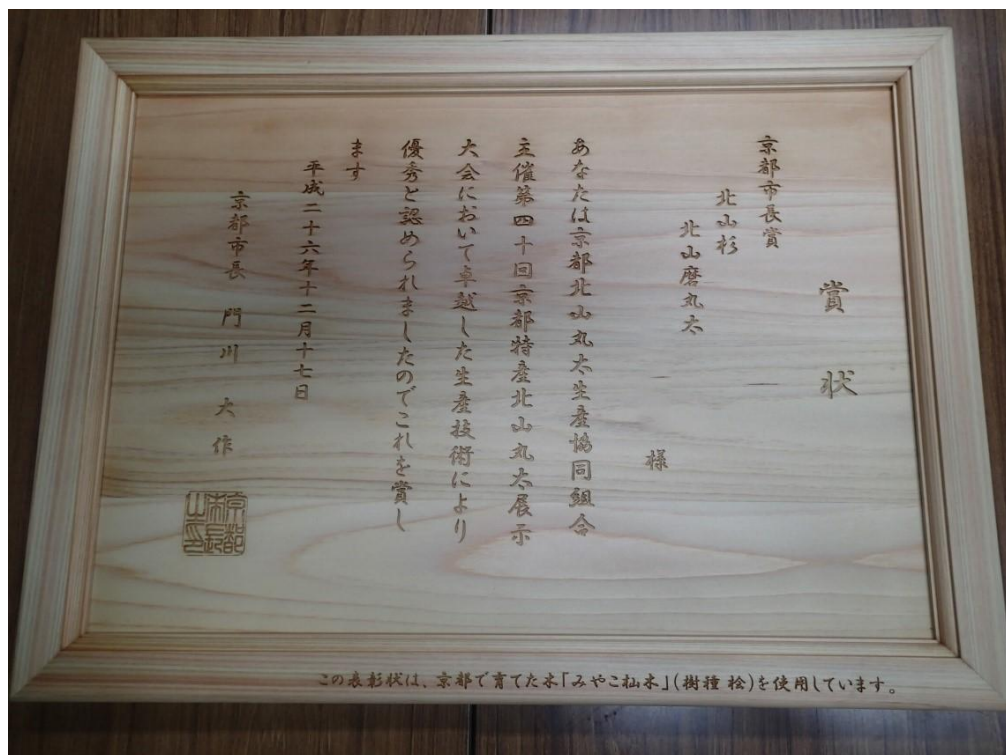 賞状
京都市長賞
北山杉
北山磨丸太
様
あなたは京都北山丸太生産協同組合
主催第四十回京都特産北山丸太展示
大会において卓越した生産技術により
優秀と認められましたのでこれを賞し
ます
平成二十六年十二月十七日
京都市長 門川大作
京都市長之印
この表彰状は、京都で育てた木「みやこ杣木」(樹種 桧)を使用しています。